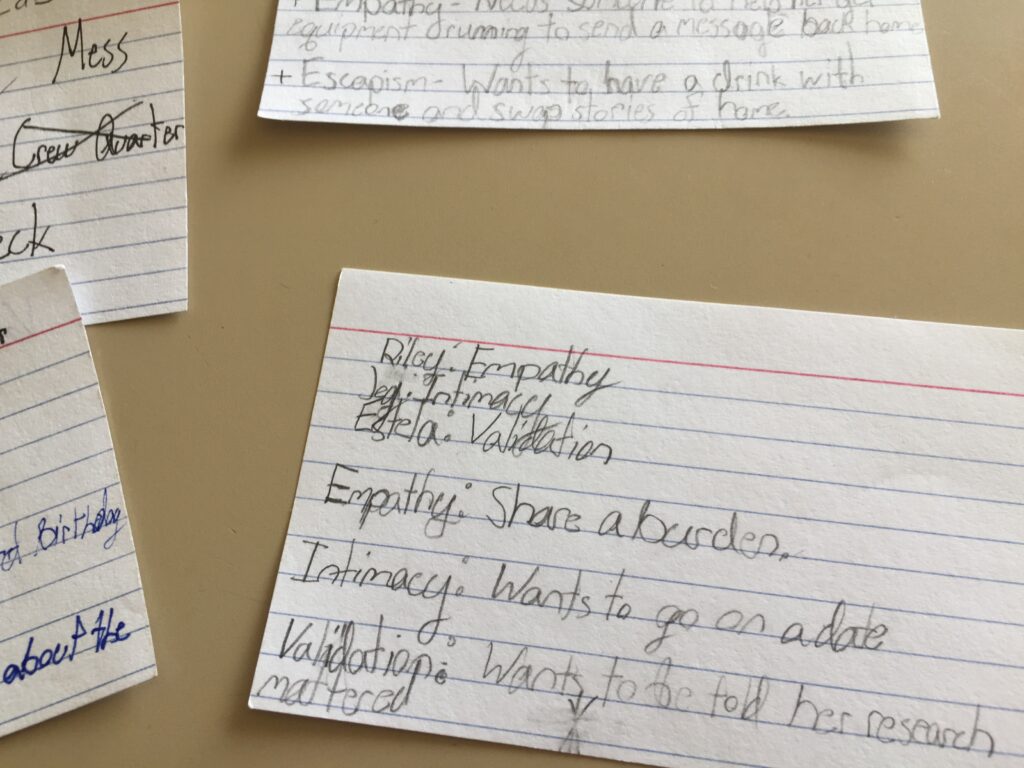 Mess
Crew Quarter
eck
Birthday
about the
+ Empathy - Needs someone to help her get
equipment drumming to send a message back home
+ Escapism - Wants to have a drink with
someone and swap stories of home.
Riley: Empathy
Jeg: Intimacy
Estela: Validation
Empathy: Share a burden.
Intimacy: Wants to go on a date
Validation: Wants to be told her research
mattered